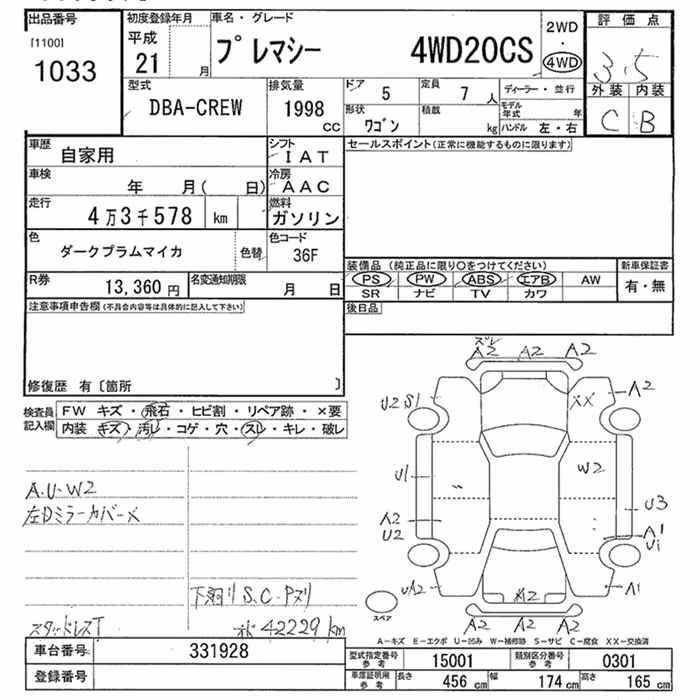 出品番号 初度登録年月 車名・グレード 2WD 評価点
[1100] 平成 プレマシー 4WD20CS ・
1033 21 月 4WD 3.5
型式 排気量 ドア 5 定員 7 人 ディーラー・並行 外装 内装
DBA-CREW 1998 CC 形状 ワゴン 積載 kg モデル年式 年 C B
ハンドル 左・右
車歴 自家用 シフト IAT セールスポイント(正常に機能するものに限ります)
車検 年 月( 日) 冷房 AAC
走行 4万3千578 km 燃料 ガソリン
色 ダークプラムマイカ 色替 色コード 36F
装備品(純正品に限り○をつけてください) 新車保証書
R券 13,360円 名変通知期限 月 日 PS PW ABS エアB AW 有・無
SR ナビ TV カワ
注意事項申告欄(不具合内容等は具体的に記入して下さい) 後日品
修復歴 有〔箇所 〕
検査員記入欄 FW キズ・飛石・ヒビ割・リペア跡・×要
内装 キズ・汚レ・コゲ・穴・スレ・キレ・破レ
ズレ
A2 A2 A2
U2 S1 XX A2
U1 W2
U3
A2 A1
U2 U1
A2 A1
A2
A2 A2 A2
スペア
A.U-W2
左Dミラーカバー×
下廻り S.C-Pヌリ
スタッドレスT オド 42229km
A-キズ E-エクボ U-凹み W-補修跡 S-サビ C-腐食 XX-交換済
車台番号 331928 型式指定番号 参考 15001 類別区分番号 参考 0301
登録番号 車庫証明用 参考 長さ 456 cm 幅 174 cm 高さ 165 cm